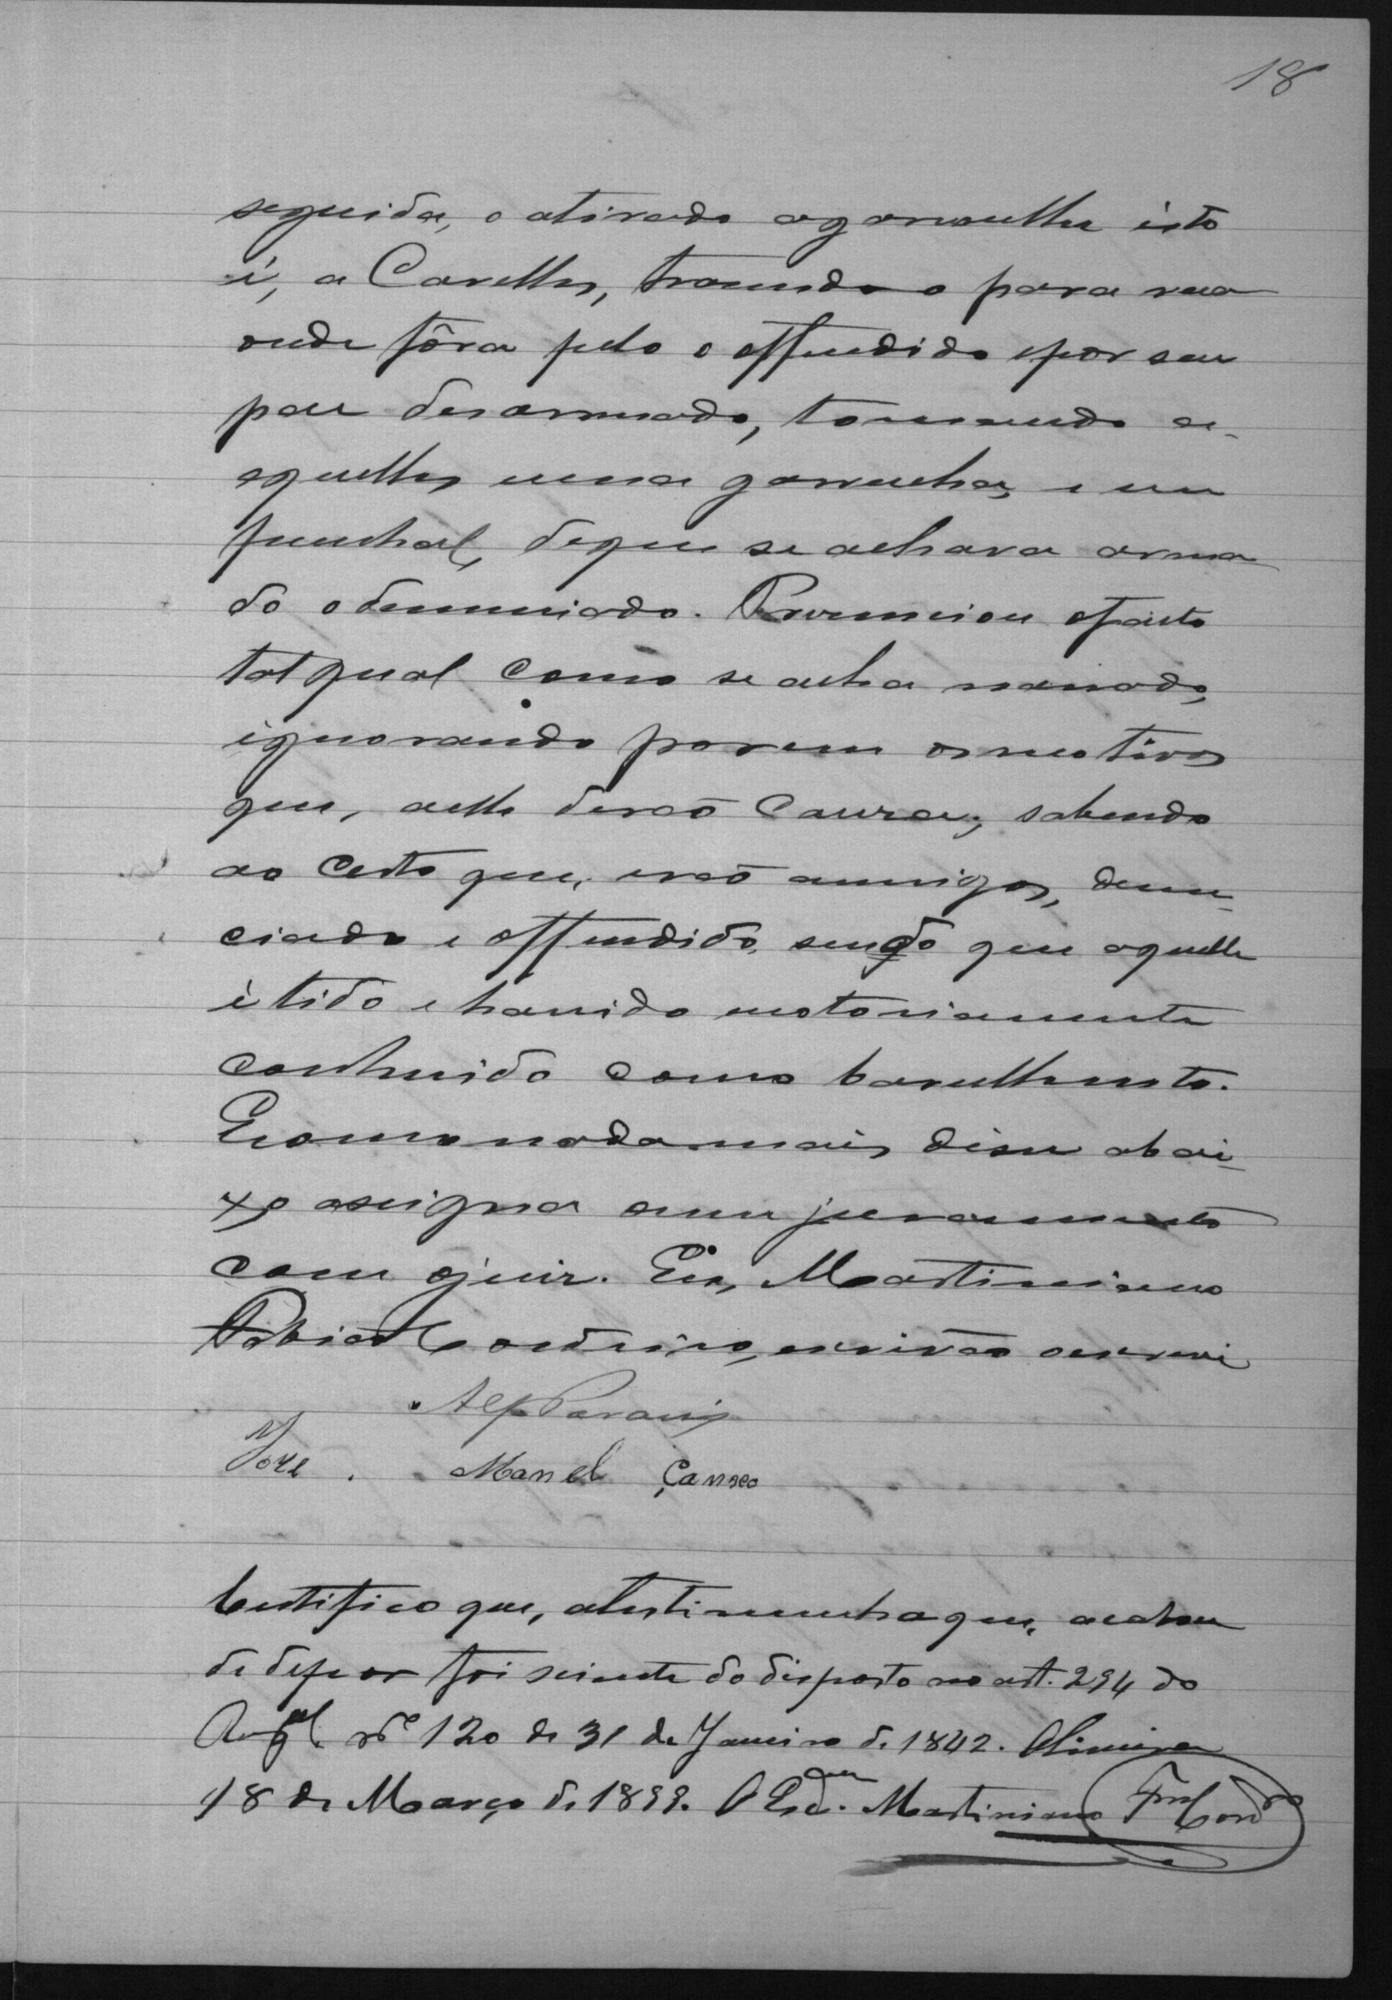 18
seguida, e atirado agarrulha isto
é, a Carellos, trasendo o para rua
onde fôra pelo o offendido e por seu
pae desarmado, tomando a-
quelles uma garrucha, e um
punhal, de que se achava arma
do o denunciado. Presenciou o facto
tal qual como se acha narrado,
ignorando porem os motivos
que, a elle derão causa; sabendo
ao certo que, erão amigos, denun-
ciado e offendido, sendo que aquelle
é tido e havido notoriamente
conhecido como barulhento.
E como nada mais disse abai-
xo assigna seu juramento
com o juiz. Eu, Martiniano
Cordeiro, escrivão escrevi
Jose Manoel
Certifico que, a testimunha que, acabou
de depor foi sciente do disposto no art. 294 do
Regul. nº 120 de 31 de Janeiro de 1842.
18 de Março de 1899. O Escam. Martiniano Cord